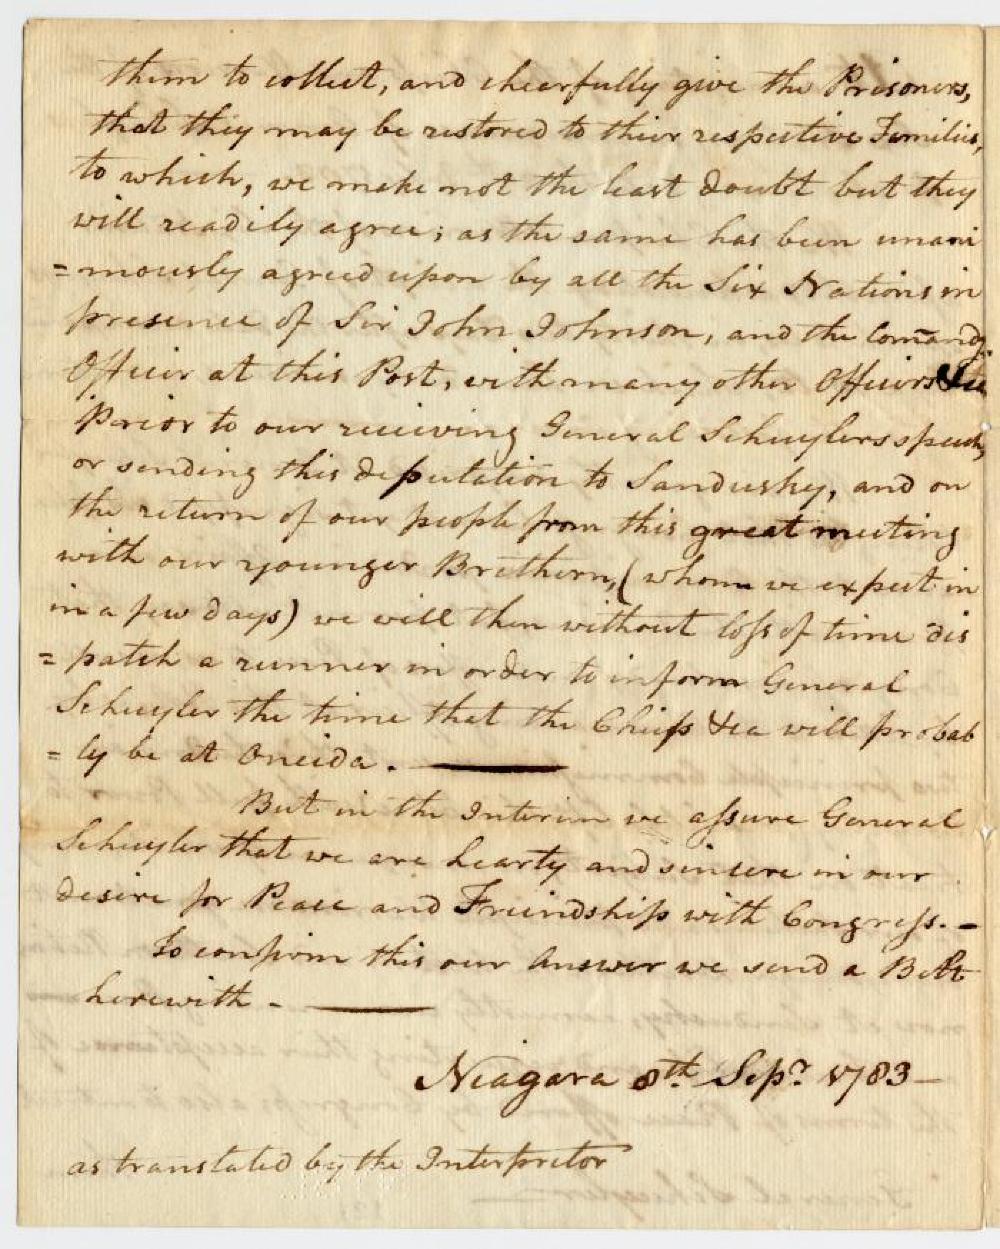 them to collect, and chearfully give the Prisoners,
that they may be restored to their respective Families,
to which, we make not the least doubt but they
will readily agree; as the same has been unani
=mously agreed upon by all the Six Nations in
presence of Sir John Johnson, and the Comandg.
Officer at this Post, with many other Officers &ca
Prior to our recieving General Schuylers speech,
or sending this deputation to Sandusky, and on
the return of our people from this great meeting
with our younger Brethern, (whom we expect in
in a few days) we will then without loss of time dis
=patch a runner in order to inform General
Schuyler the time that the Chiefs &ca will probab
=ly be at Oneida.
But in the Interim we assure General
Schuyler that we are hearty and sincere in our
desire for Peace and Friendship with Congress. -
To confirm this our Answer we send a Belt
herewith -
Niagara 8th. Sepr. 1783 -
as translated by the Interpretor